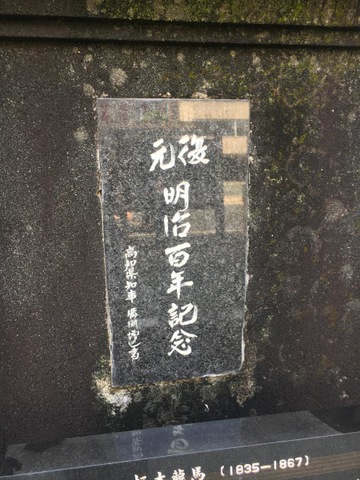 復元
明治百年記念
高知県知事 溝渕増巳書
坂本龍馬 (1835—1867)